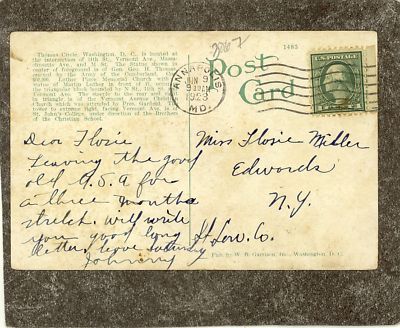 Thomas Circle, Washington, D. C., is located at
the intersection of 14th St., Vermont Ave., Massa-
chusetts Ave. and M St. The Statue shown in
center of foreground is of Gen. Geo. H. Thomas
Army of the Cumberland.
Luther Place Memorial Church with a
statue of Martin Luther in front of it
the triangular block bounded by N St., 14th St. and
Vermont Ave. The steeple to the rear and
the triangle is of the Vermont Avenue Christian
Church which was attended by Pres. Garfield.
tower to extreme right, facing Vermont Ave. is
St. John's College, under direction of the Brothers
of the Christian School.
2067
1485
Post
Card
ANNAPOLIS
JUN 9
9 30 AM
1923
MD.
Dear Flosie
Leaving the good
old U.S.A for
a three months
stretch. Will write
you good long
letter, love
Johnny
Miss Flosie Miller
Edwards
N.Y.
St Law. Co.
Pub. by W. B. Garrison, Inc., Washington, D. C.